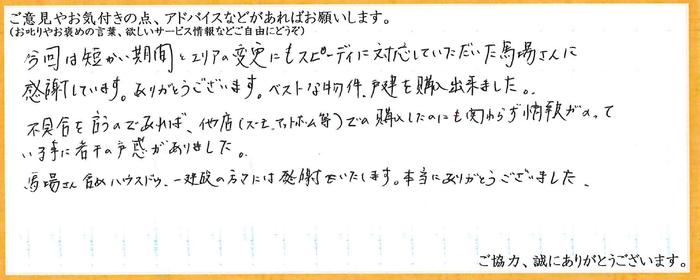 ご意見やお気付きの点、アドバイスなどがあればお願いします。
(お叱りやお褒めの言葉、欲しいサービス情報などご自由にどうぞ)
今回は短かい期間とエリアの変更にもスピーディに対応していただいた馬場さんに
感謝しています。ありがとうございます。ベストな物件、戸建を購入出来ました。
不具合を言うのであれば、他店(スーモ、アットホーム等)での購入したのにも関わらず情報がのって
いる事に若干の戸惑がありました。
馬場さん含めハウスドゥ、一建設の方々には感謝をいたします。本当にありがとうございました、
ご協力、誠にありがとうございます。